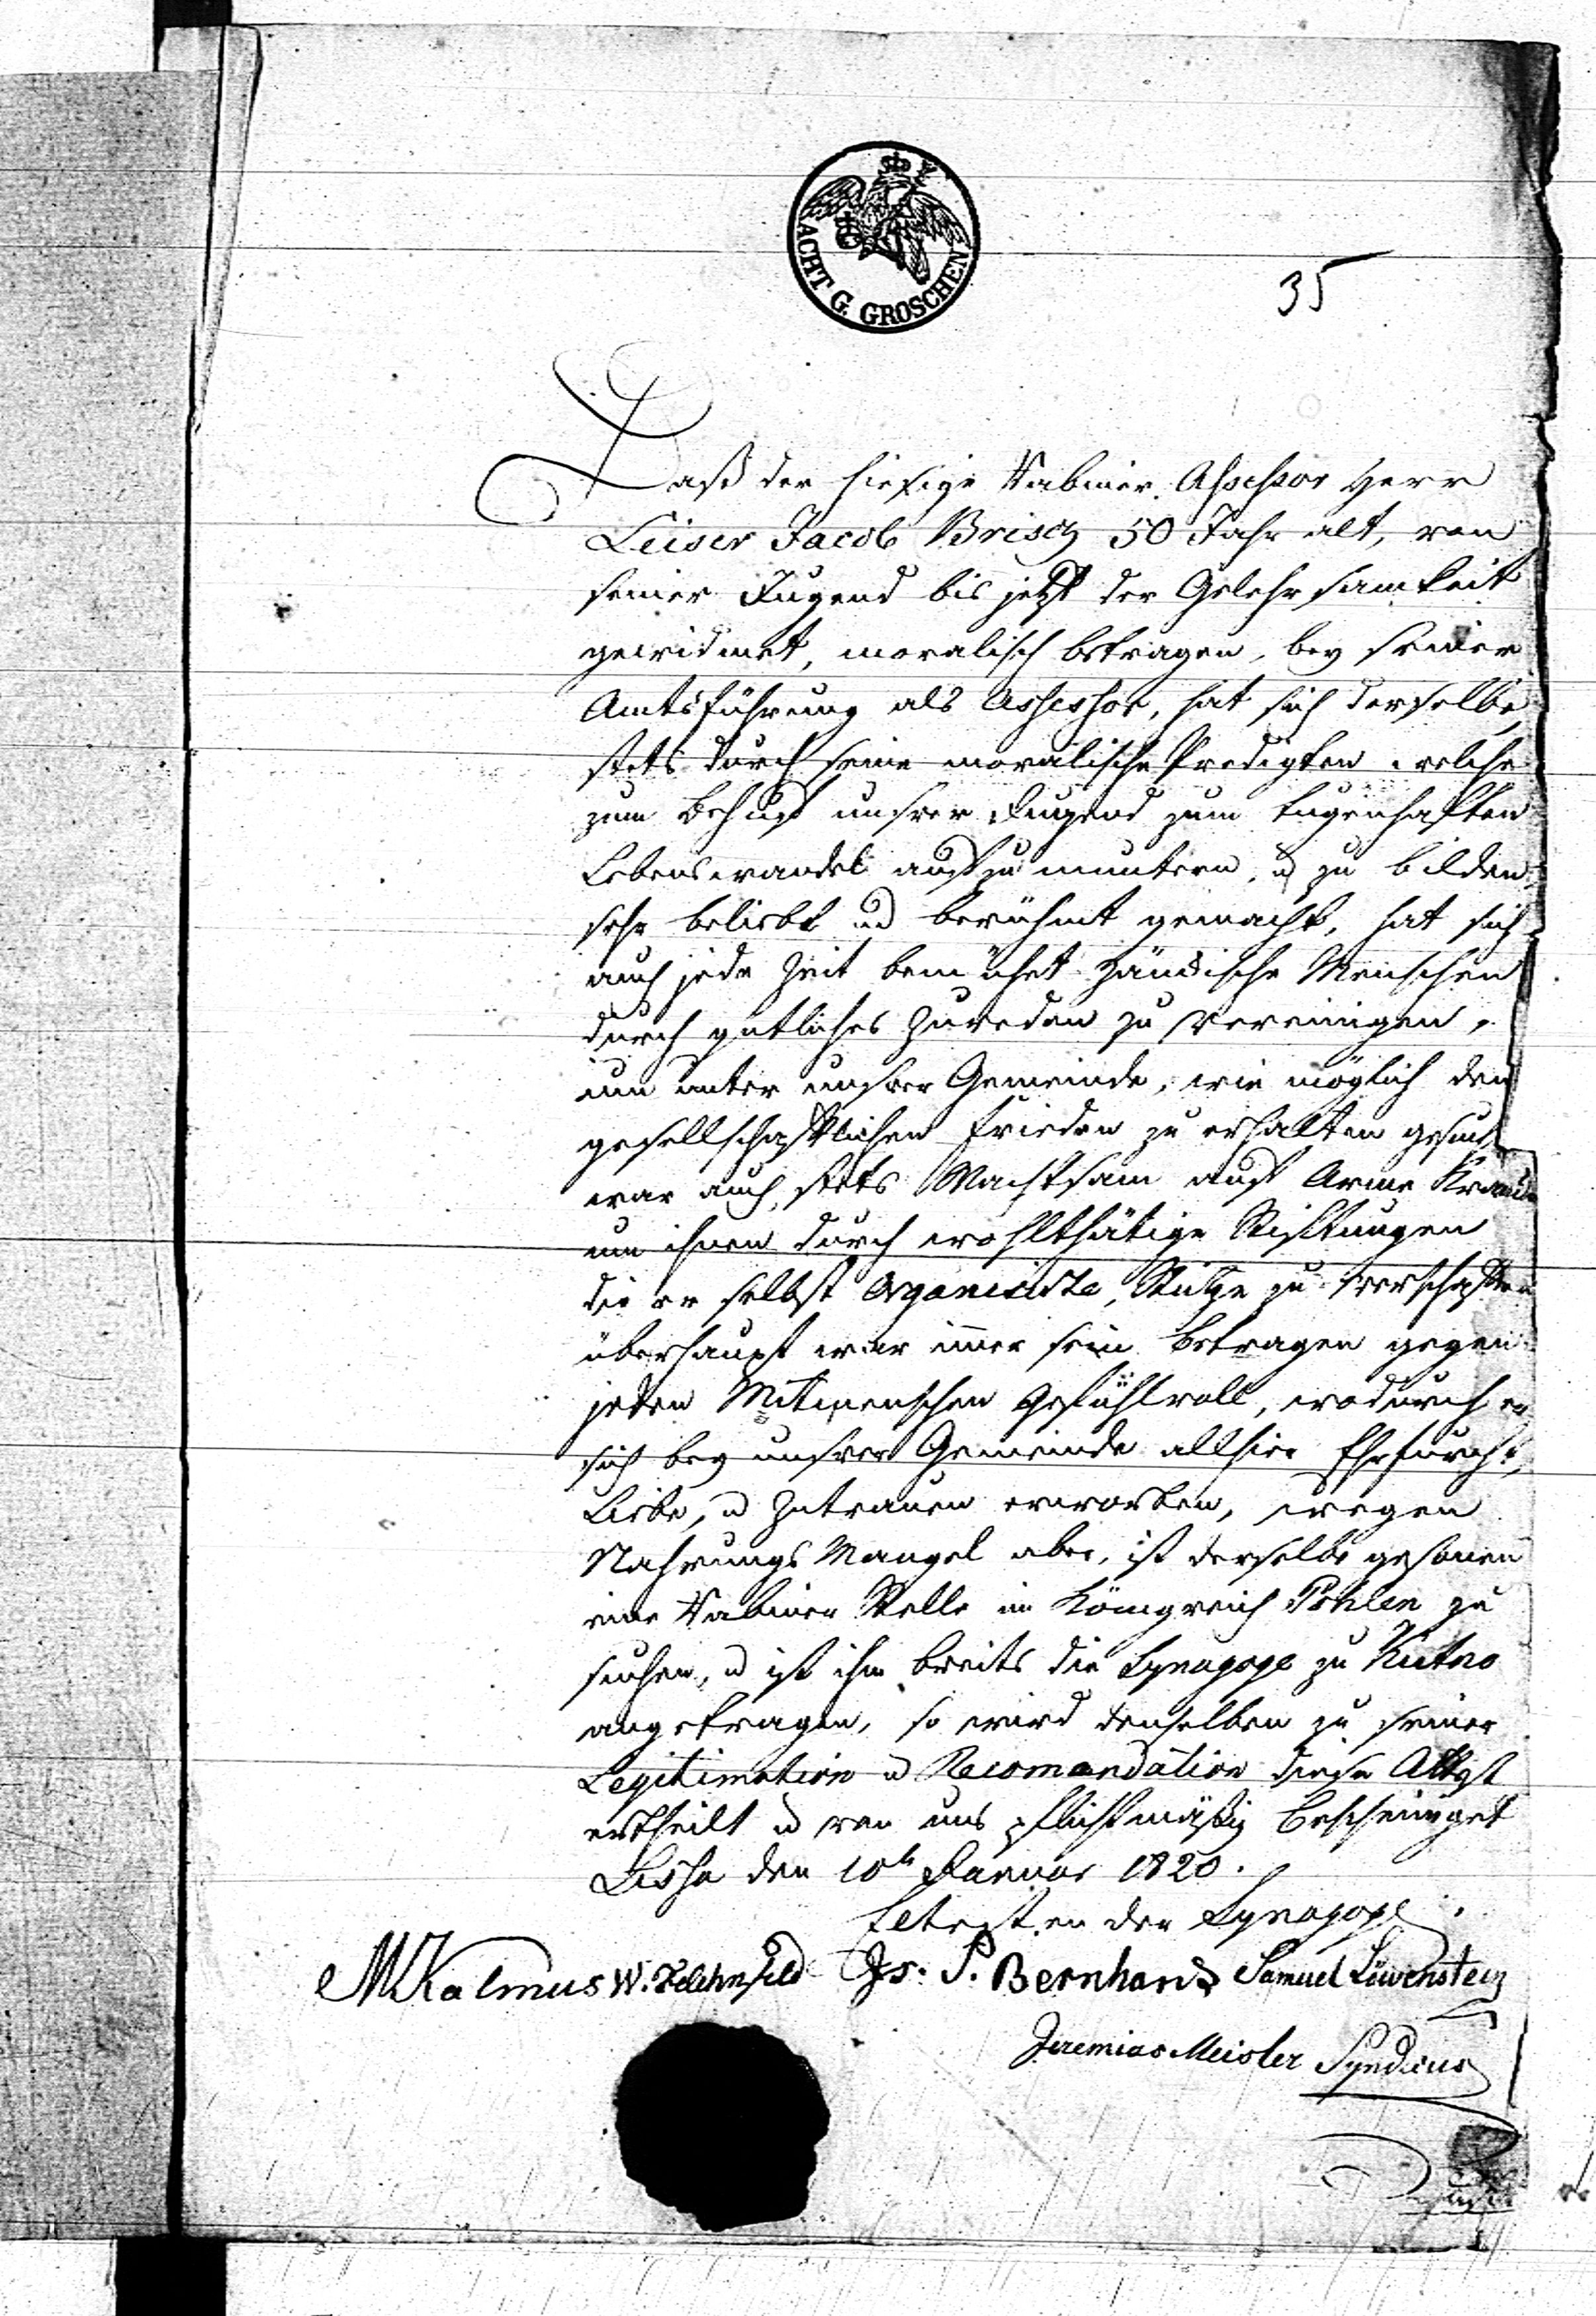 ACHT G. GROSCHEN
35
Daß der hiesige Rabiner Assessor Herr
Leiser Jacob Brisch 50 Jahr alt, von
seiner Jugend bis jetzt der Gelehrsamkeit
gewidmet, moralisch betragen, bey seiner
Amtsführung als Assessor, hat sich derselbe
stets durch seine moralische Predigten welche
zum behuf unsrer Jugend zum tugenhaften
Lebenswandel aufzumuntern, u zu bilden
sehr beliebt und berühmt gemacht, hat sich
auch jede Zeit bemühet zänkische Menschen
durch gütliches Zureden zu vereinigen,
um unter unsrer Gemeinde, wie möglich den
gesellschaftlichen Frieden zu erhalten gesucht
war auch stets Wachtsam auf Arme Kranke
um ihnen durch wohlthätige Stiftungen
die er selbst Organisirte, Stütze zu verschaffen
überhaupt war imer sein betragen gegen
jeden Mitmenschen gefühlvoll, wodurch er
sich bey unsrer Gemeinde allhier Ehrfurcht,
Liebe, u Zutrauen erworben, wegen
Nahrungs Mangel aber, ist derselbe gesonen
eine Rabiner Stelle im Königreich Pohlen zu
suchen, u ist ihm breits die Synagoge zu Kutno
angetragen, so wird denselben zu seiner
Legitimation u Recomandation diese Attest
ertheilt u von uns pflichtmäßig bescheiniget
Lissa den 10t Januar 1820.
Eltesten der Synagoge.
M Kalmus W. Js. S. Bernhard Samuel Löwenstein
Jeremias Meisler Syndicus